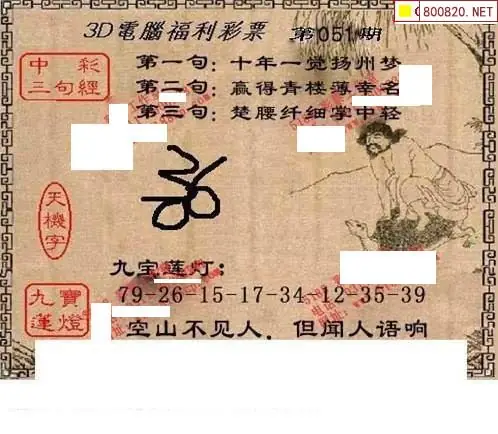 800820.NET
3D電腦福利彩票 第051期
中彩
三句經
第一句：十年一觉扬州梦
第二句：赢得青楼薄幸名
第三句：楚腰纤细掌中轻
天機字
九宝莲灯：
九寶
蓮燈
79-26-15-17-34-12-35-39
空山不见人，但闻人语响